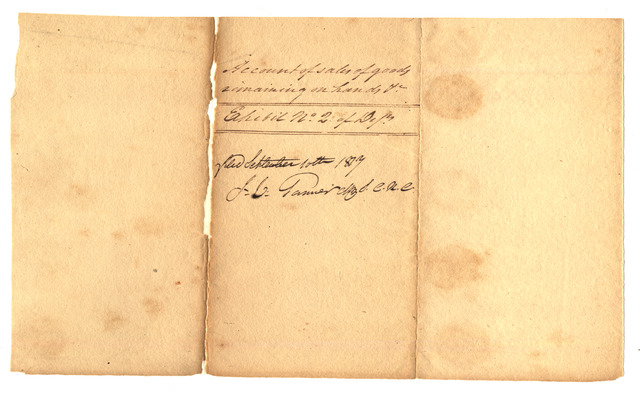 Account of sales of goods
remaining on hands &c
Exhibit No. 2. of Defts
filed September 10th
J. L. Tanner C. N. C.